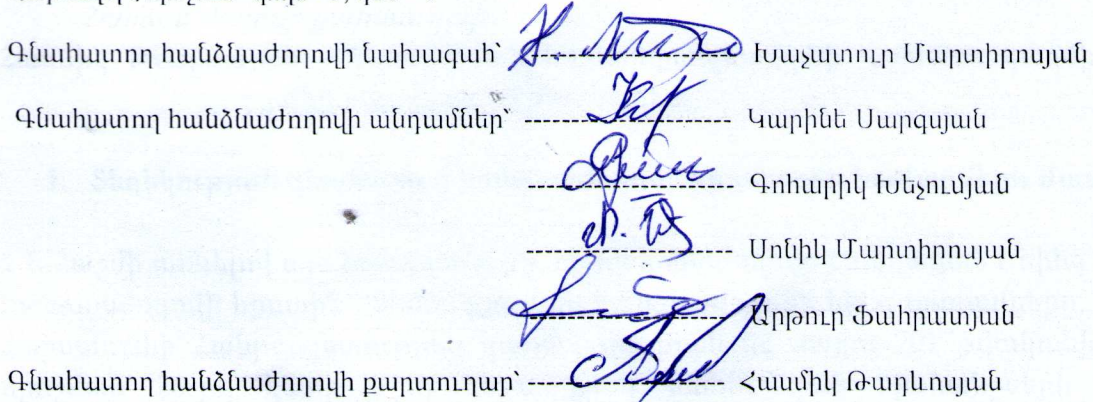 Գնահատող հանձնաժողովի նախագահ՝ Խաչատուր Մարտիրոսյան
Գնահատող հանձնաժողովի անդամներ՝ Կարինե Սարգսյան
Գոհարիկ Խեչումյան
Մոնիկ Մարտիրիսյան
Արթուր Ֆահրատյան
Գնահատող հանձնաժողովի քարտուղար՝ Հասմիկ Թադևոսյան